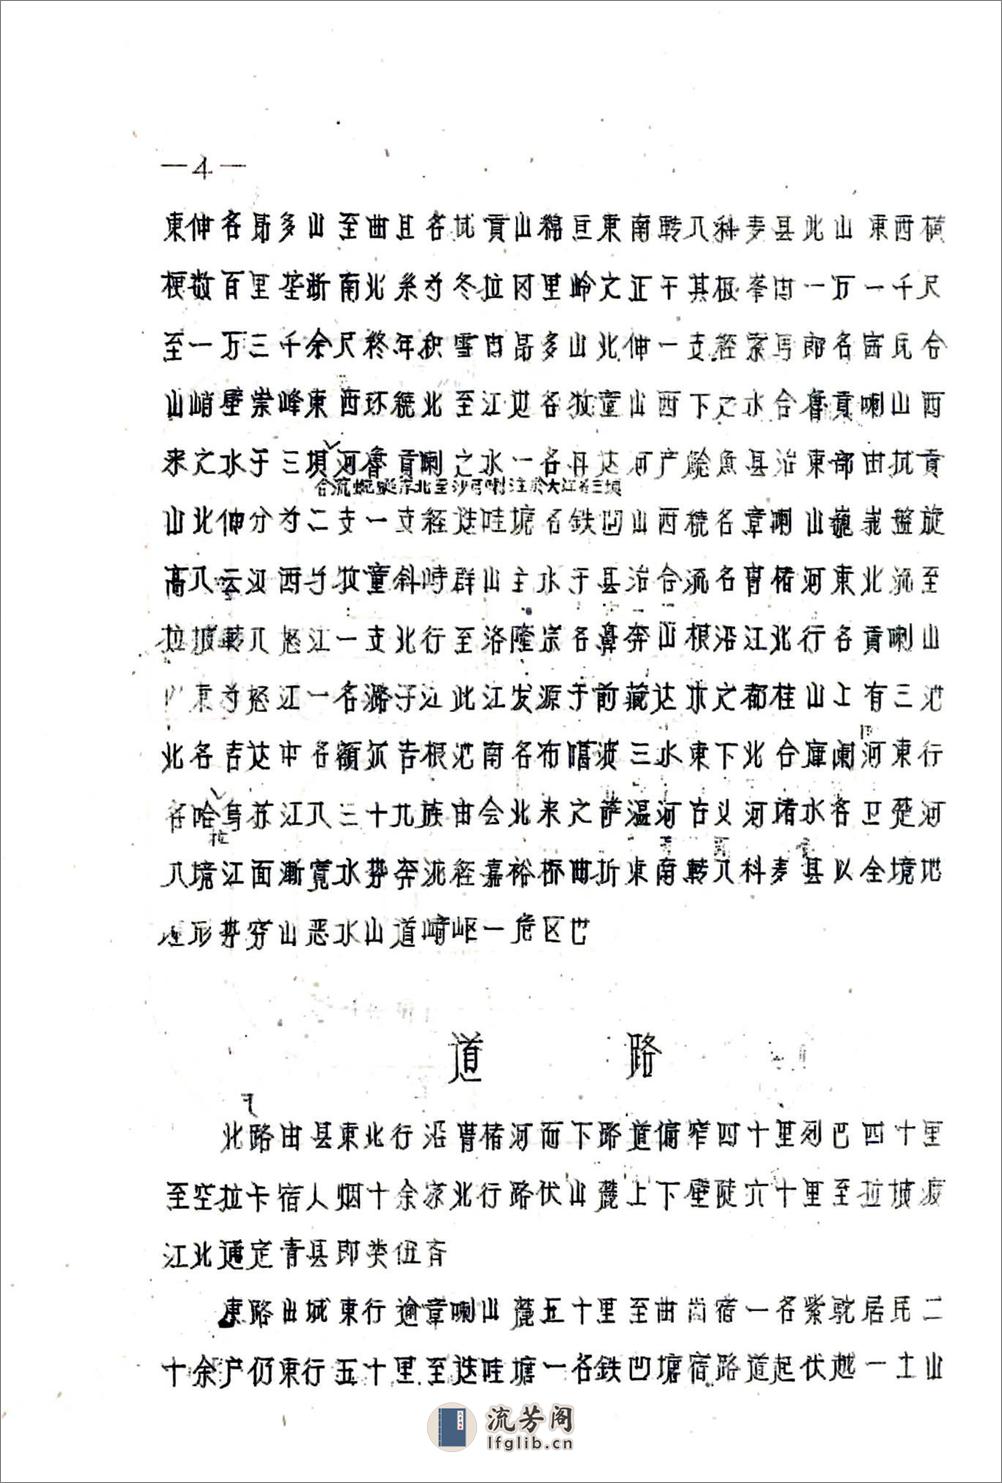 —4—
東伸名昂多山至曲且名抗貢山綿亘東南轉入科麦县此山東西横
梗数百里垄断南北系为冬拉冈里岭之正干其极峯由一万一千尺
至一万三千余尺終年积雪由昂多山北伸一支経家馬郎名宫民合
山峭壁崇峰東西环繞北至江边名牧童山西下之水合魯貢喇山西
来之水于三埧河魯貢喇之水一名丹达河产鯰魚县治東部由抗貢
合流蜿蜒浮北至沙弓喇注於大江名三埧
山北伸分为二支一支経迗哇塘名鉄凹山西梳名章喇山巍峩盤旋
高入云汉西与牧童斜峙群山主水于县治合流名曹楮河東北流至
拉披轉入怒江一支北行至洛隆宗名鼻奔山根沿江北行名貢喇山
以東为怒江一名潞于江此江发源于前藏达木之都桂山上有三池
北名吉达中名额尔吉根池南名布喀波三水東下北合庫阑河東行
名哈乌苏江入三十九族由会北来之萨温河古义河堵水各卫楚河
拉
入境江面漸寬水势奔流経嘉裕桥曲折東南轉入科麦县以全境地
理形势穷山恶水山道崎岖一危区巴
道路
北路由县東北行沿曹楮河而下路道偏窄四十里列巴四十里
至空拉卡宿人烟十余家北行路伏山麓上下壁陡六十里至拉披渡
江北通定青县即类伍斉
東路由城東行逾章喇山麓五十里至曲尚宿一名紫駝居民二
十余户仍東行五十里至迗哇塘一名鉄凹塘宿路道起伏越一土山
流芳阁
lfglib.cn